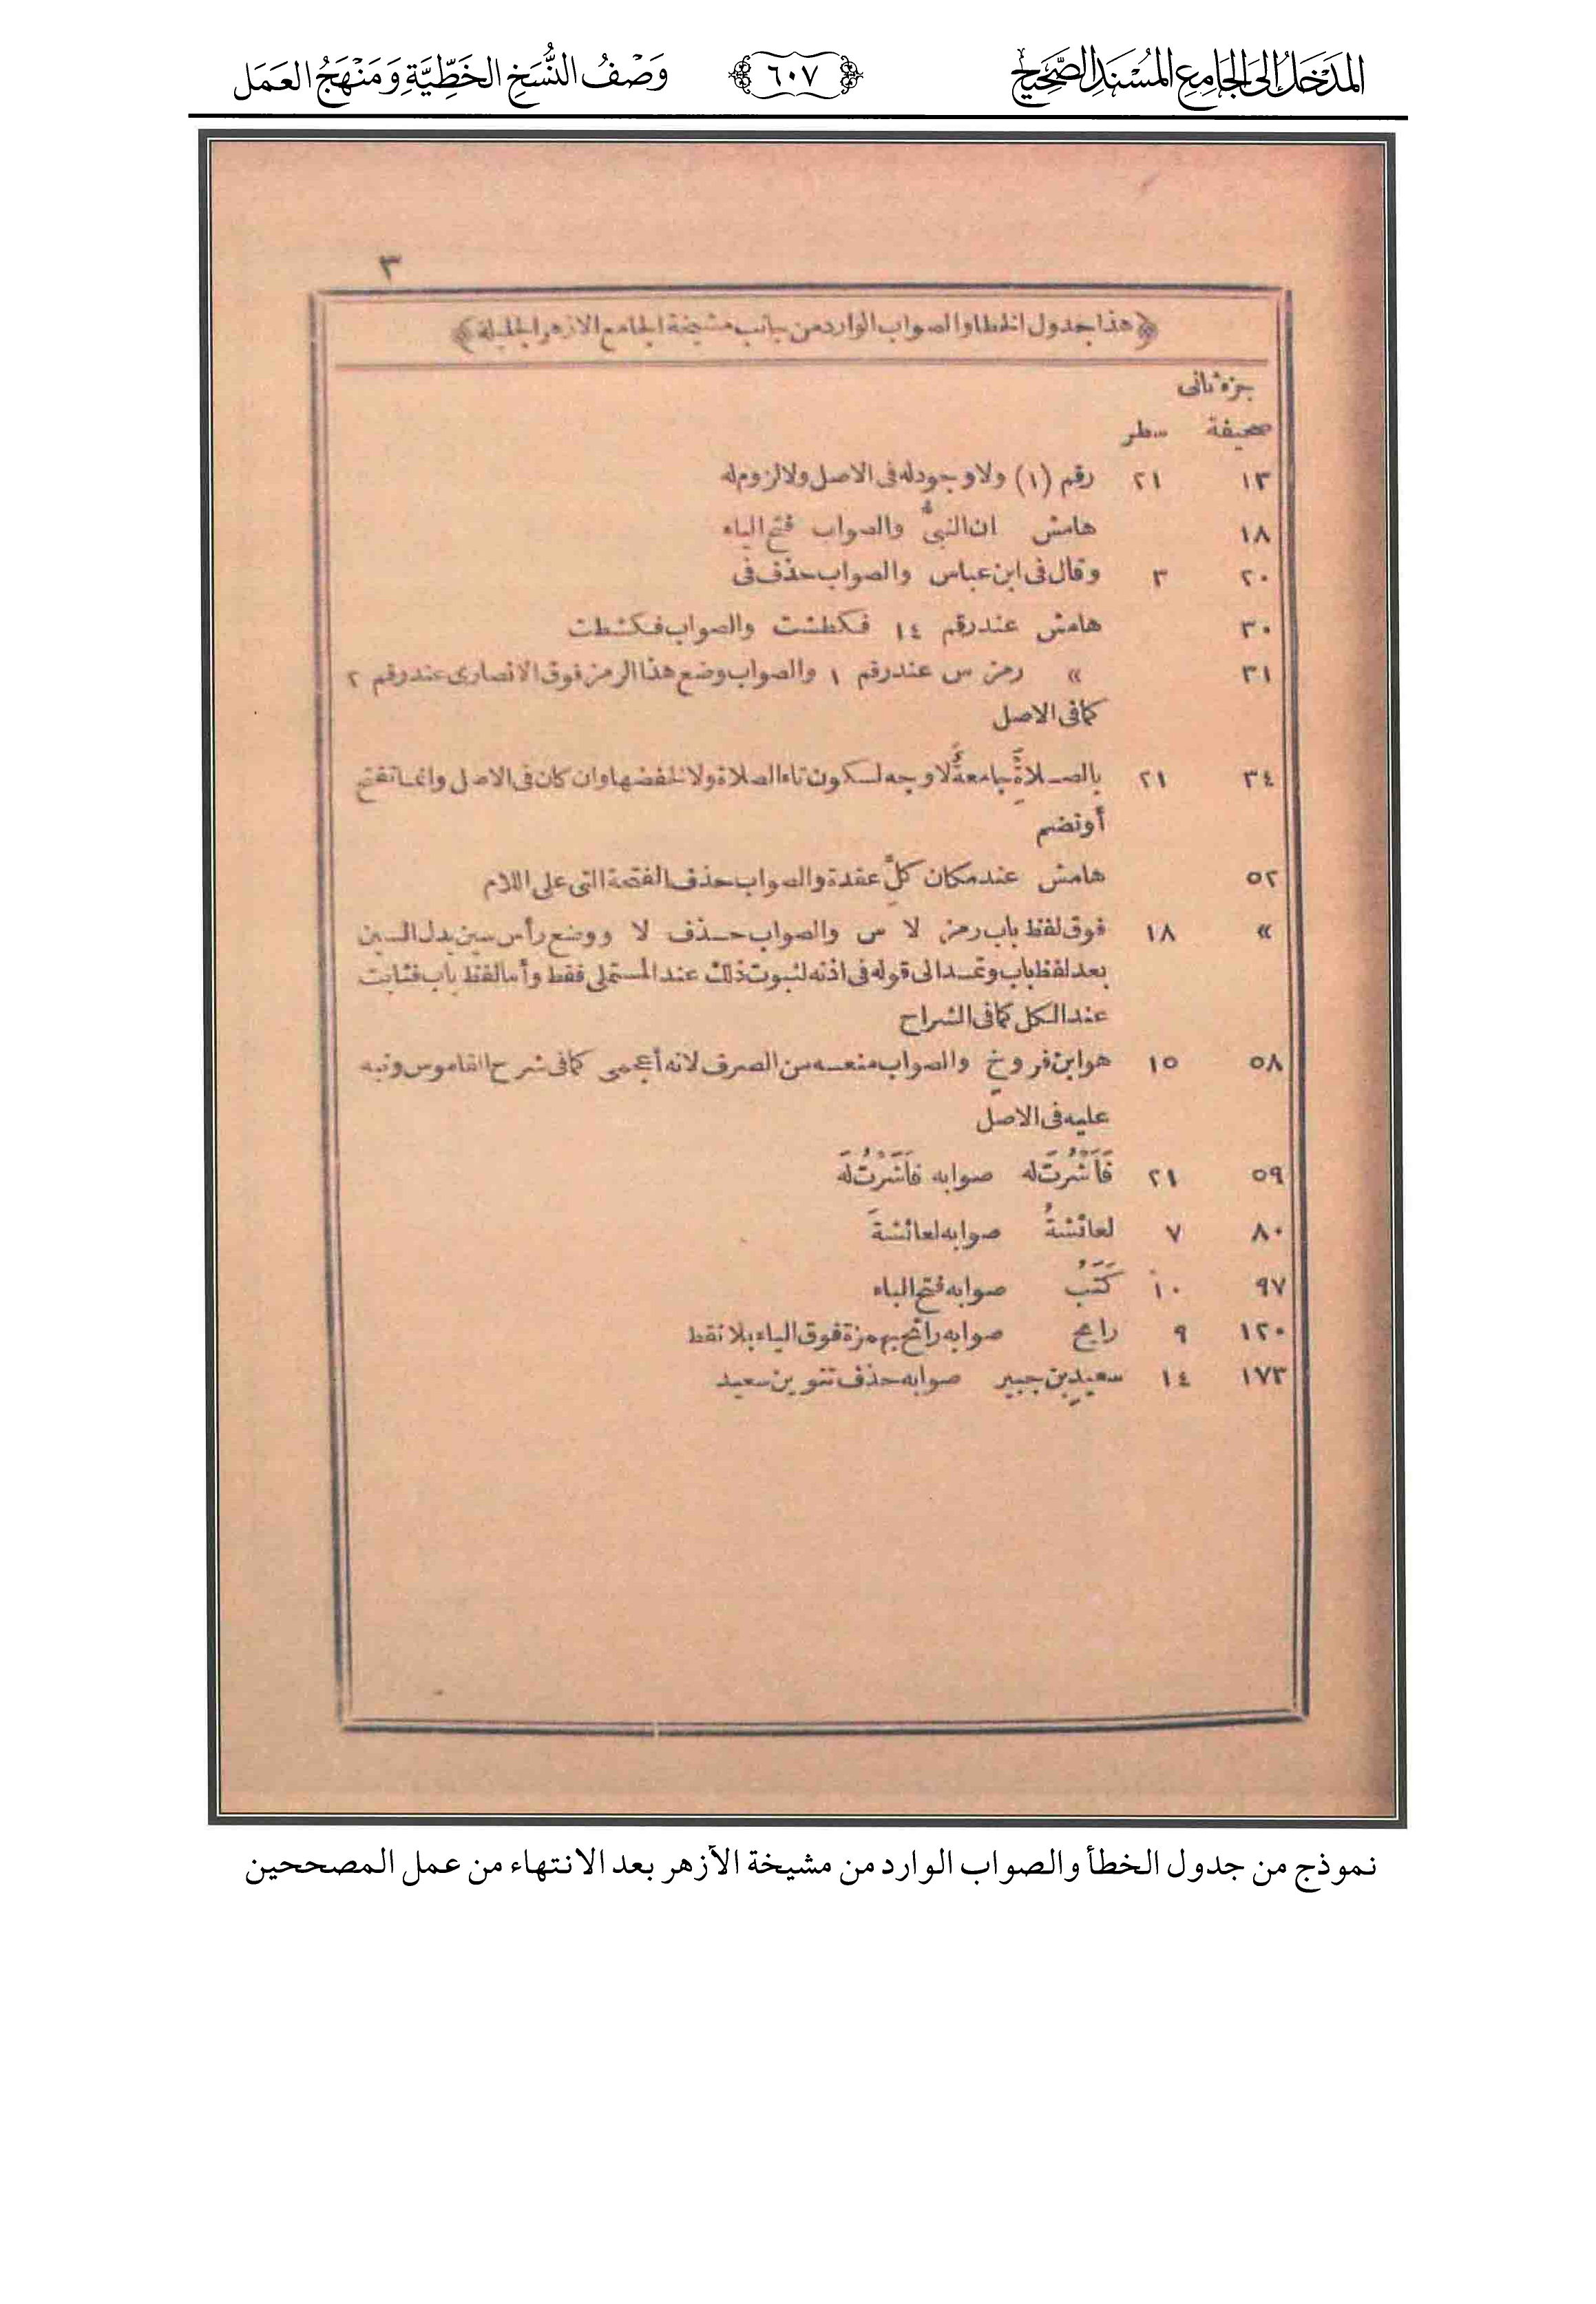 المَدْخَلُ إِلَى الجَامِعِ المُسْنَدِ الصَّحِيحِ ٦٠٧ وَصْفُ النُّسَخِ الخَطِّيَّةِ وَمَنْهَجُ العَمَل
٣
﴿هذا جدول الخطا والصواب الوارد من جانب مشيخة الجامع الازهر الجليلة﴾
جزء ثانى
صحيفة سطر
١٣ ٢١ رقم (١) ولا وجود له فى الاصل ولا لزوم له
١٨ هامش ان النبىُّ والصواب فتح الياء
٢٠ ٣ وقال فى ابن عباس والصواب حذف فى
٣٠ هامش عند رقم ١٤ فكطشت والصواب فكشطت
٣١ » رمز س عند رقم ١ والصواب وضع هذا الرمز فوق الانصارى عند رقم ٢
كما فى الاصل
٣٤ ٢١ بالصلاة جامعة لا وجه لسكون تاء الصلاة ولا لخفضها وان كان فى الاصل وانما تفتح
أو تضم
٥٢ هامش عند مكان كلَِّ عقدة والصواب حذف الفتحة التى على اللام
» ١٨ فوق لفظ باب رمز لا س والصواب حذف لا ووضع رأس سين بدل السين
بعد لفظ باب وتمد الى قوله فى اذنه لثبوت ذلك عند المستملى فقط وأما لفظ باب فثابت
عند الكل كما فى الشراح
٥٨ ١٥ هو ابن فروخٍ والصواب منعه من الصرف لانه أعجمى كما فى شرح القاموس ونبه
عليه فى الاصل
٥٩ ٢١ فَأَشَرْتُ لَه صوابه فَأَشَرْتُ لَهُ
٨٠ ٧ لعائشةُ صوابه لعائشةَ
٩٧ ١٠ كَتَبُ صوابه فتح الباء
١٢٠ ٩ رايح صوابه رائح بهمزة فوق الياء بلا نقط
١٧٣ ١٤ سعيدٍ بن جبير صوابه حذف تنوين سعيد
نموذج من جدول الخطأ والصواب الوارد من مشيخة الأزهر بعد الانتهاء من عمل المصححين